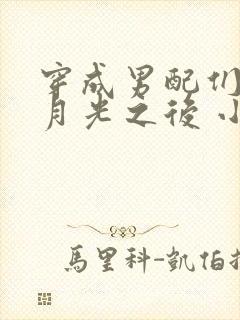 穿成男配们
月光之後 小
馬里科-凱伯